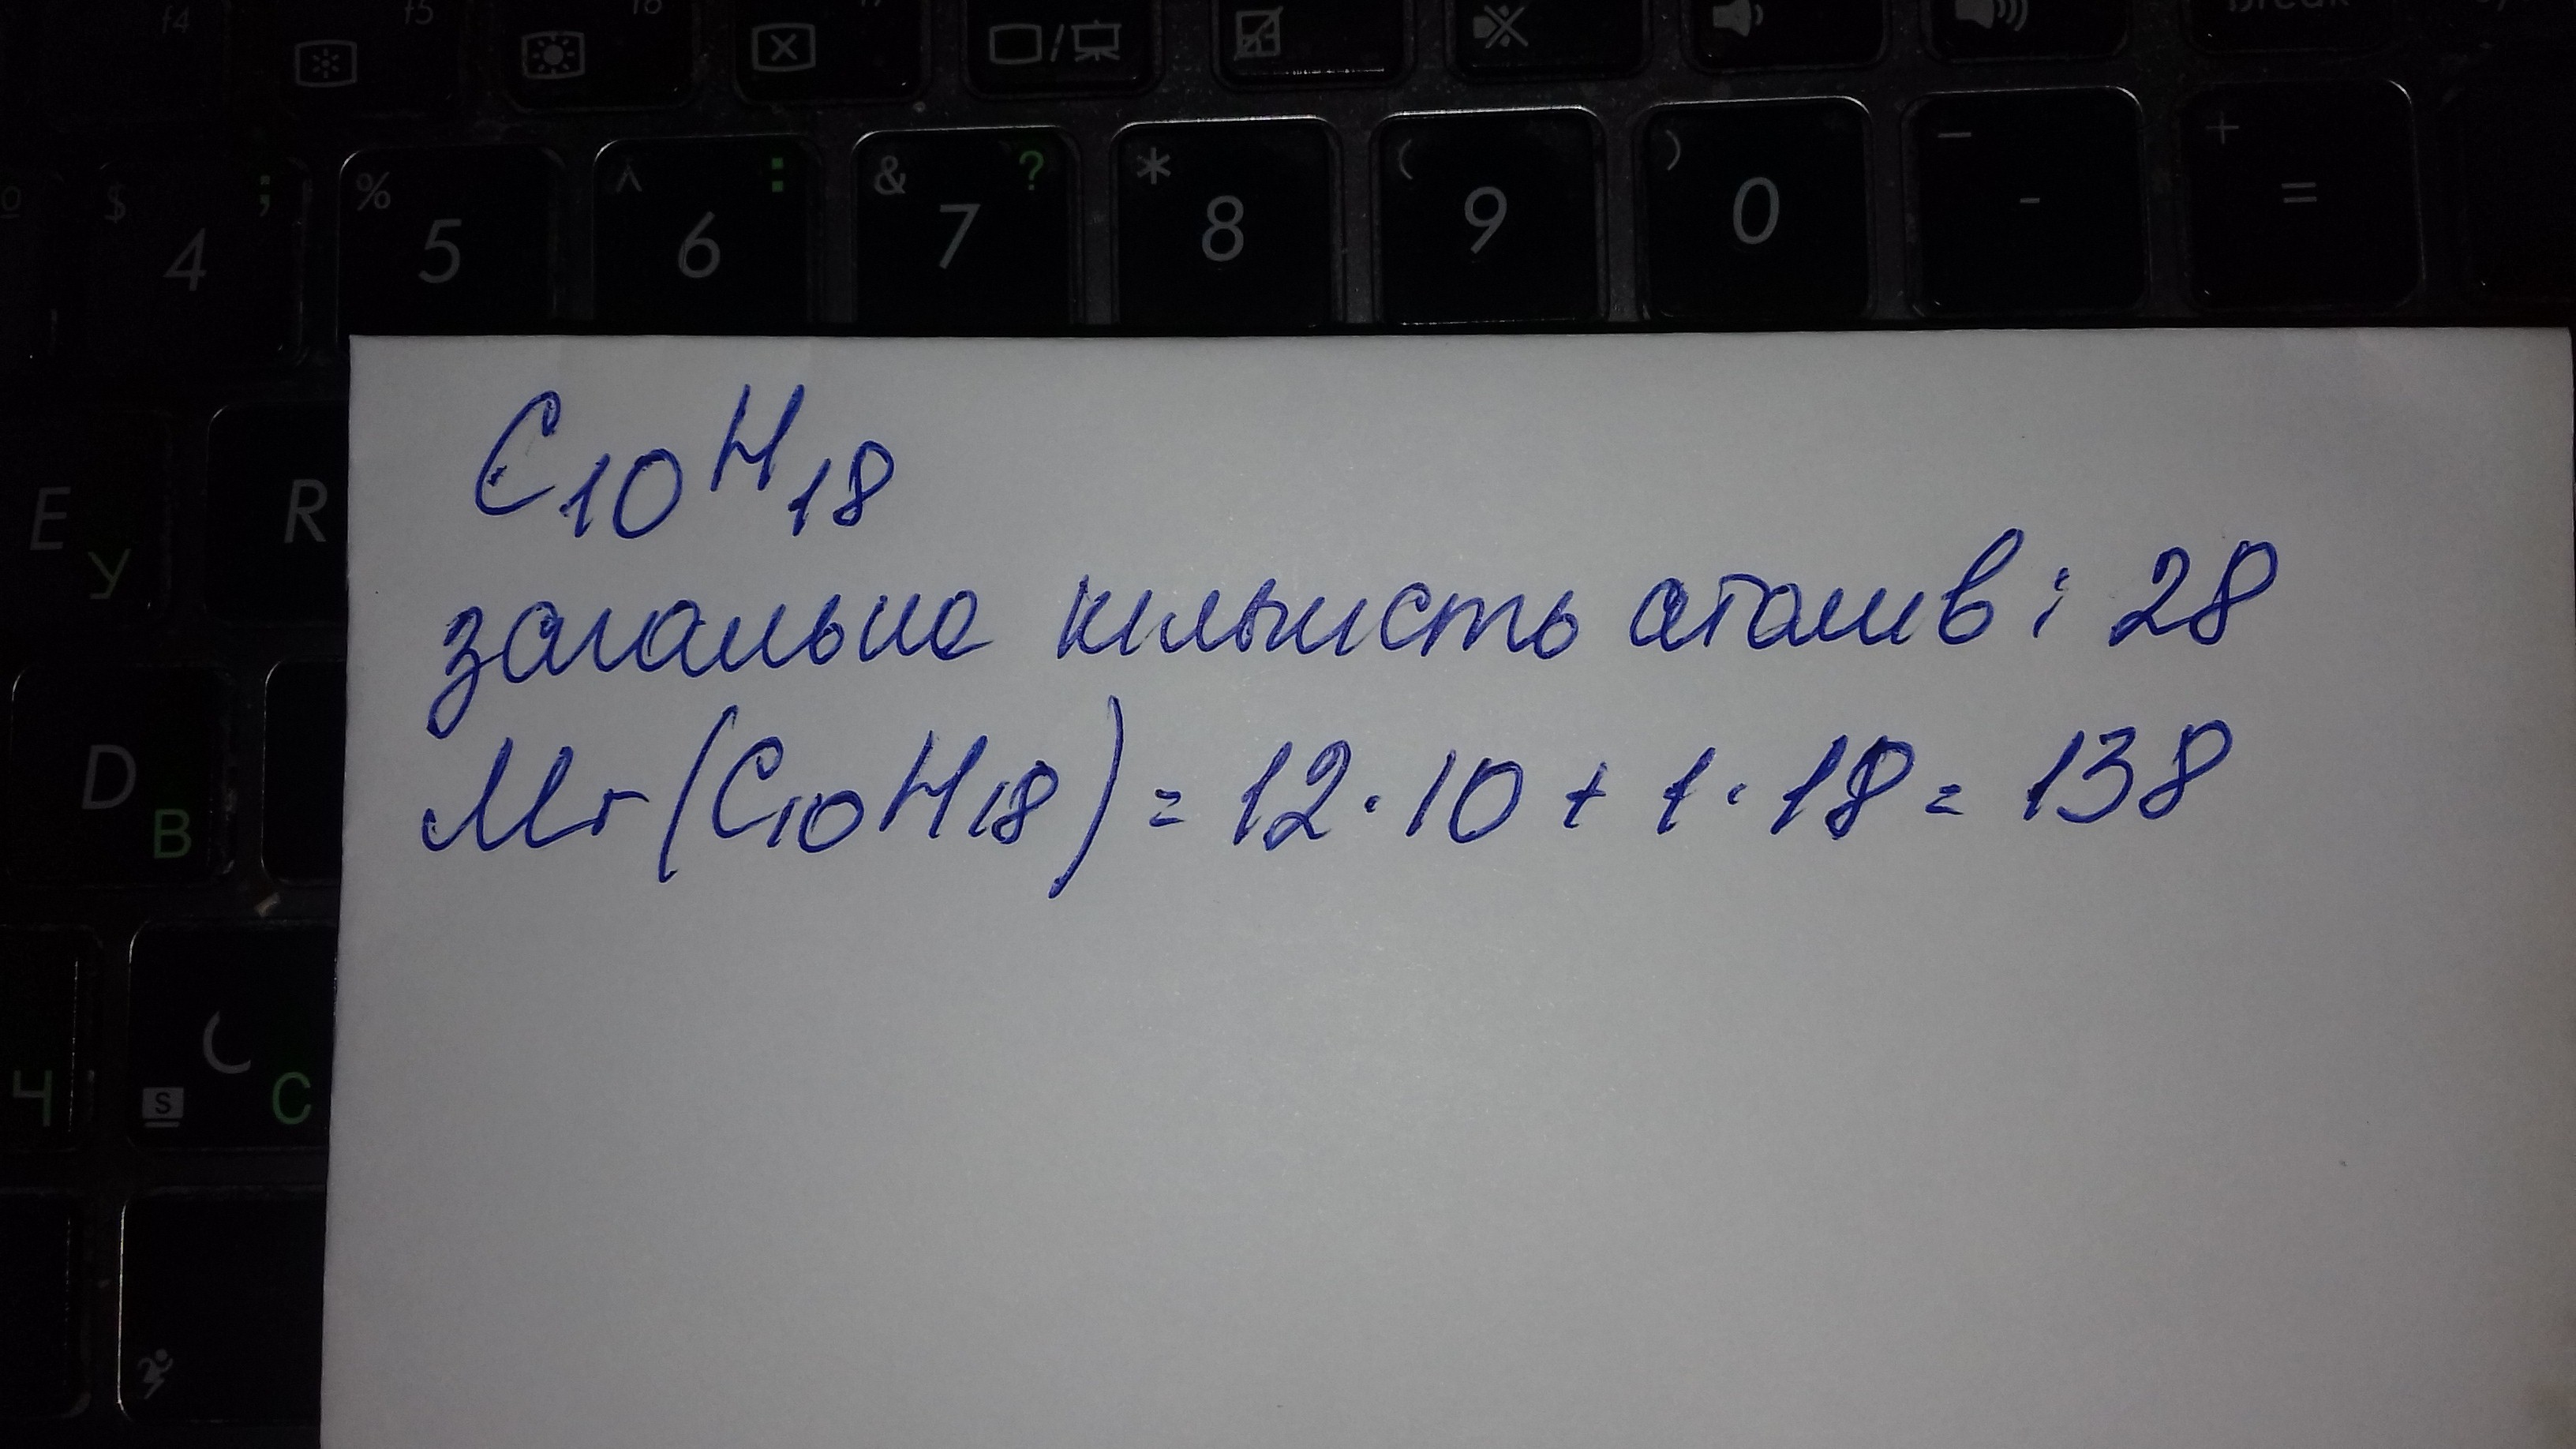 f4 f5 f6
Break
$ 4 ; % 5 ^ 6 : & 7 ? * 8 ( 9 ) 0 _ - + =
E У R
D В
Ч C С
S
C₁₀H₁₈
загальна кількість атомів: 28
Mr(C₁₀H₁₈) = 12·10 + 1·18 = 138